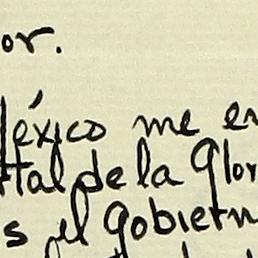 or.
éxico me en
tal de la Glor
s el Gobiern